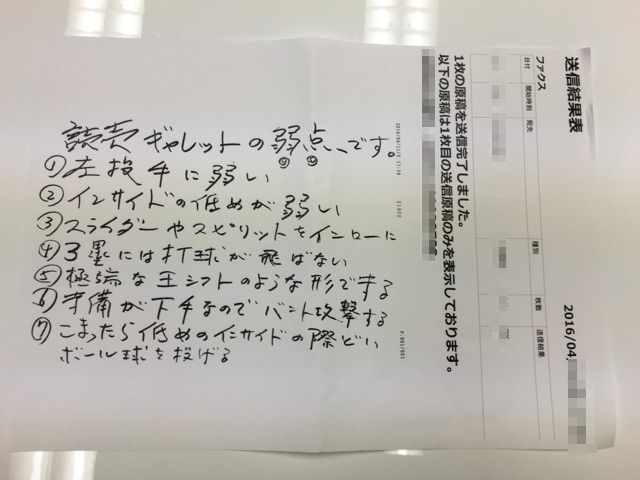 送信結果表
2016/04
ファクス
日付
開始時刻
宛先
種別
枚数
送信結果
1枚の原稿を送信完了しました。
以下の原稿は1枚目の送信原稿のみを表示しております。
P.001/001
読売ギャレットの弱点、です。
①左投手に弱い
②インサイドの低めが弱い
③スライダーやスピリットをインローに
④3塁には打球が飛ばない
⑤極端な王シフトのような形で守る
⑥守備が下手なのでバント攻撃する
⑦こまったら低めのインサイドの際どい
ボール球を投げる